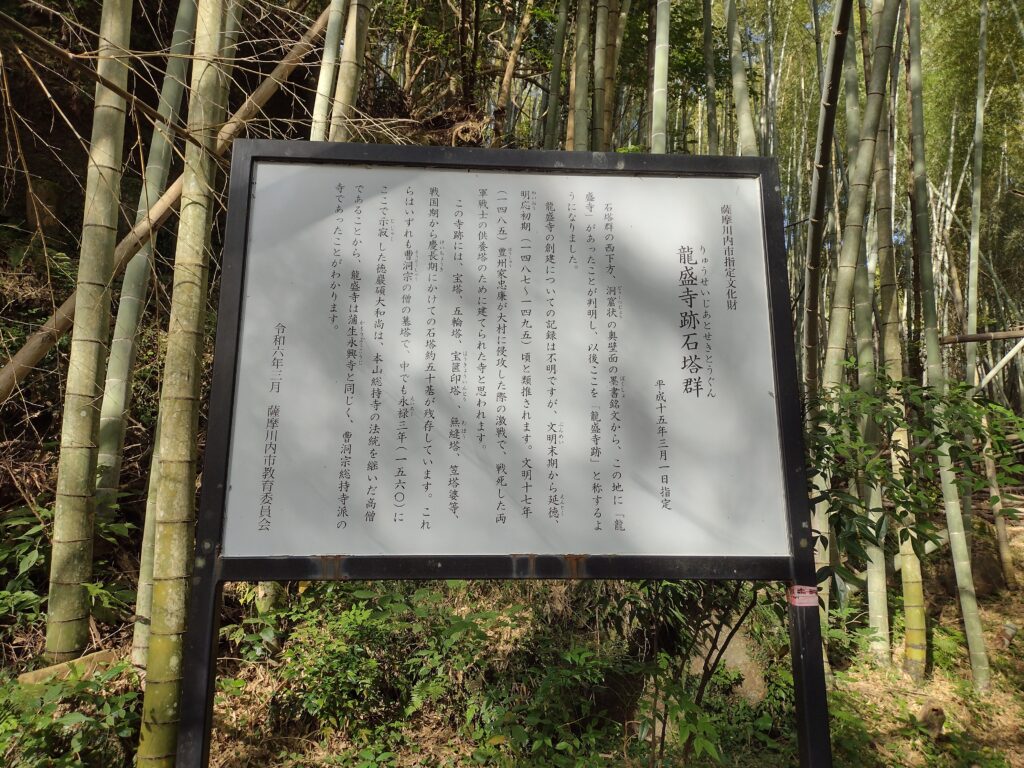 薩摩川内市指定文化財
りゅうせいじあとせきとうぐん
龍盛寺跡石塔群
平成十五年三月一日指定
石塔群の西下方、洞窟状の奥壁面の墨書銘文から、この地に「龍
盛寺」があったことが判明し、以後ここを「龍盛寺跡」と称するよ
うになりました。
龍盛寺の創建についての記録は不明ですが、文明末期から延徳、
明応初期(一四八七~一四九五)頃と類推されます。文明十七年
(一四八五)豊州家忠廉が大村に侵攻した際の激戦で、戦死した両
軍戦士の供養塔のために建てられた寺と思われます。
この寺跡には、宝塔、五輪塔、宝篋印塔、無縫塔、笠塔婆等、
戦国期から慶長期にかけての石塔約五十基が残存しています。これ
らはいずれも曹洞宗の僧の墓塔で、中でも永禄三年(一五六〇)に
ここで示寂した徳巖碩大和尚は、本山総持寺の法統を継いだ高僧
であることから、龍盛寺は蒲生永興寺と同じく、曹洞宗総持寺派の
寺であったことがわかります。
令和六年三月　薩摩川内市教育委員会